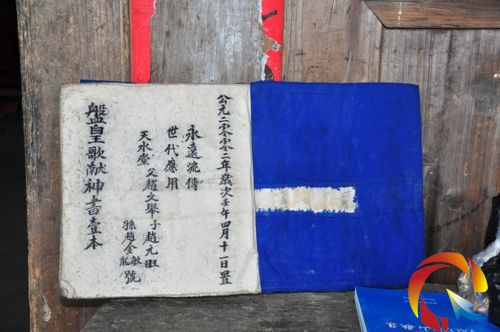 公元二零零二年歲次壬午四月十一日置
永遠流傳
世代應用
天水堂 父趙文舉 子趙元旺
孫趙金敏龍 號
盤皇歌献神書壹本